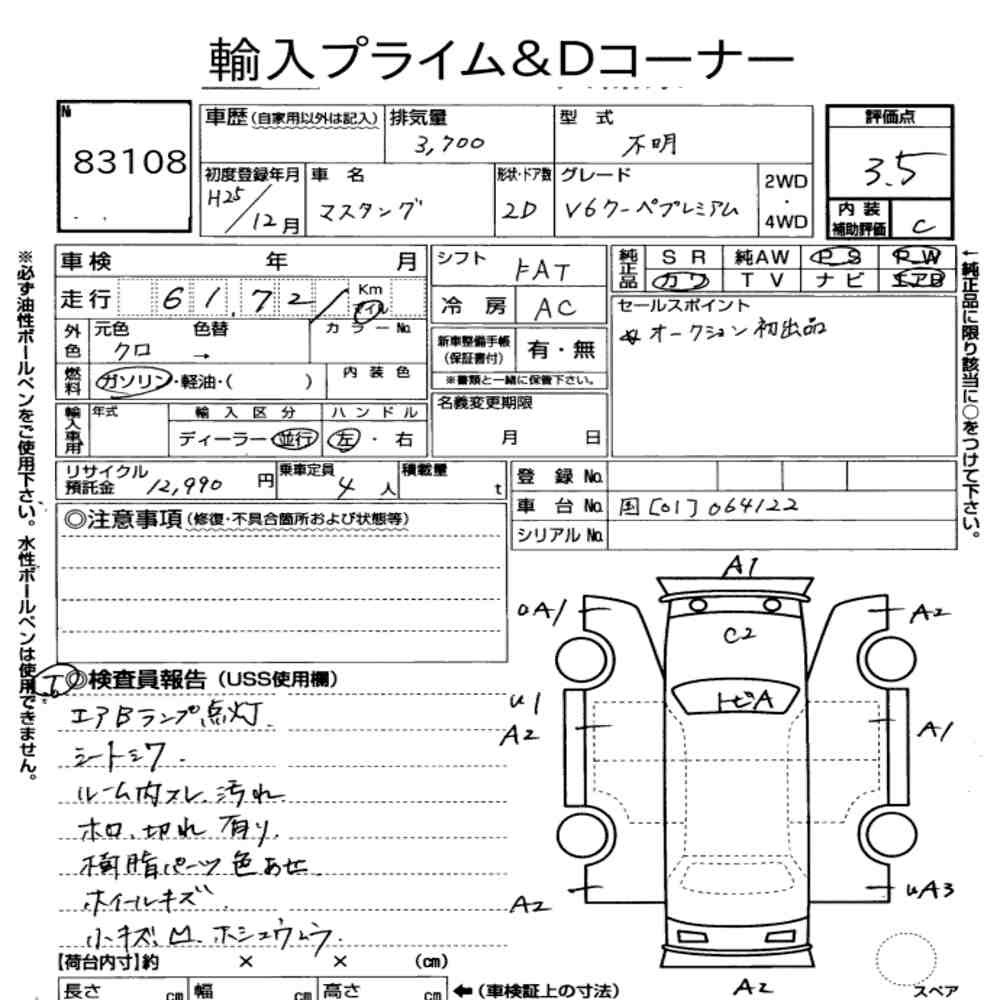 輸入プライム&Dコーナー
№ 83108
車歴(自家用以外は記入) 排気量 3,700 型式 不明 評価点 3.5
初度登録年月 H25/12月 車名 マスタング 形状・ドア数 2D グレード V6クーペプレミアム 2WD・4WD
内装補助評価 C
車検 年 月
シフト FAT
純正品 SR 純AW PS PW
カワ TV ナビ エアB
走行 61,72/ Km マイル
冷房 AC
セールスポイント
オークション初出品
外色 元色 クロ 色替 → カラーNo.
新車整備手帳(保証書付) 有・無
※書類と一緒に保管下さい。
燃料 ガソリン・軽油・( ) 内装色
名義変更期限 月 日
輸入車用 年式 輸入区分 ディーラー・並行 ハンドル 左・右
リサイクル預託金 12,990円 乗車定員 4人 積載量 t
登録No.
車台No. 国[01]064122
シリアルNo.
◎注意事項(修復・不具合箇所および状態等)
※必ず油性ボールペンをご使用下さい。水性ボールペンは使用できません。
←純正品に限り該当に○をつけて下さい。
◎検査員報告(USS使用欄)
エアBランプ点灯.
シートシワ.
ルーム内スレ.汚れ
ホロ.切れ有り.
樹脂パーツ色あせ.
ホイールキズ.
小キズ.凹.ホシュウムラ.
A1
A1
A2
C2
トビA
U1
A2
A1
A2
UA3
A2
スペア
【荷台内寸】約 × × (cm)
長さ cm 幅 cm 高さ cm ←(車検証上の寸法)